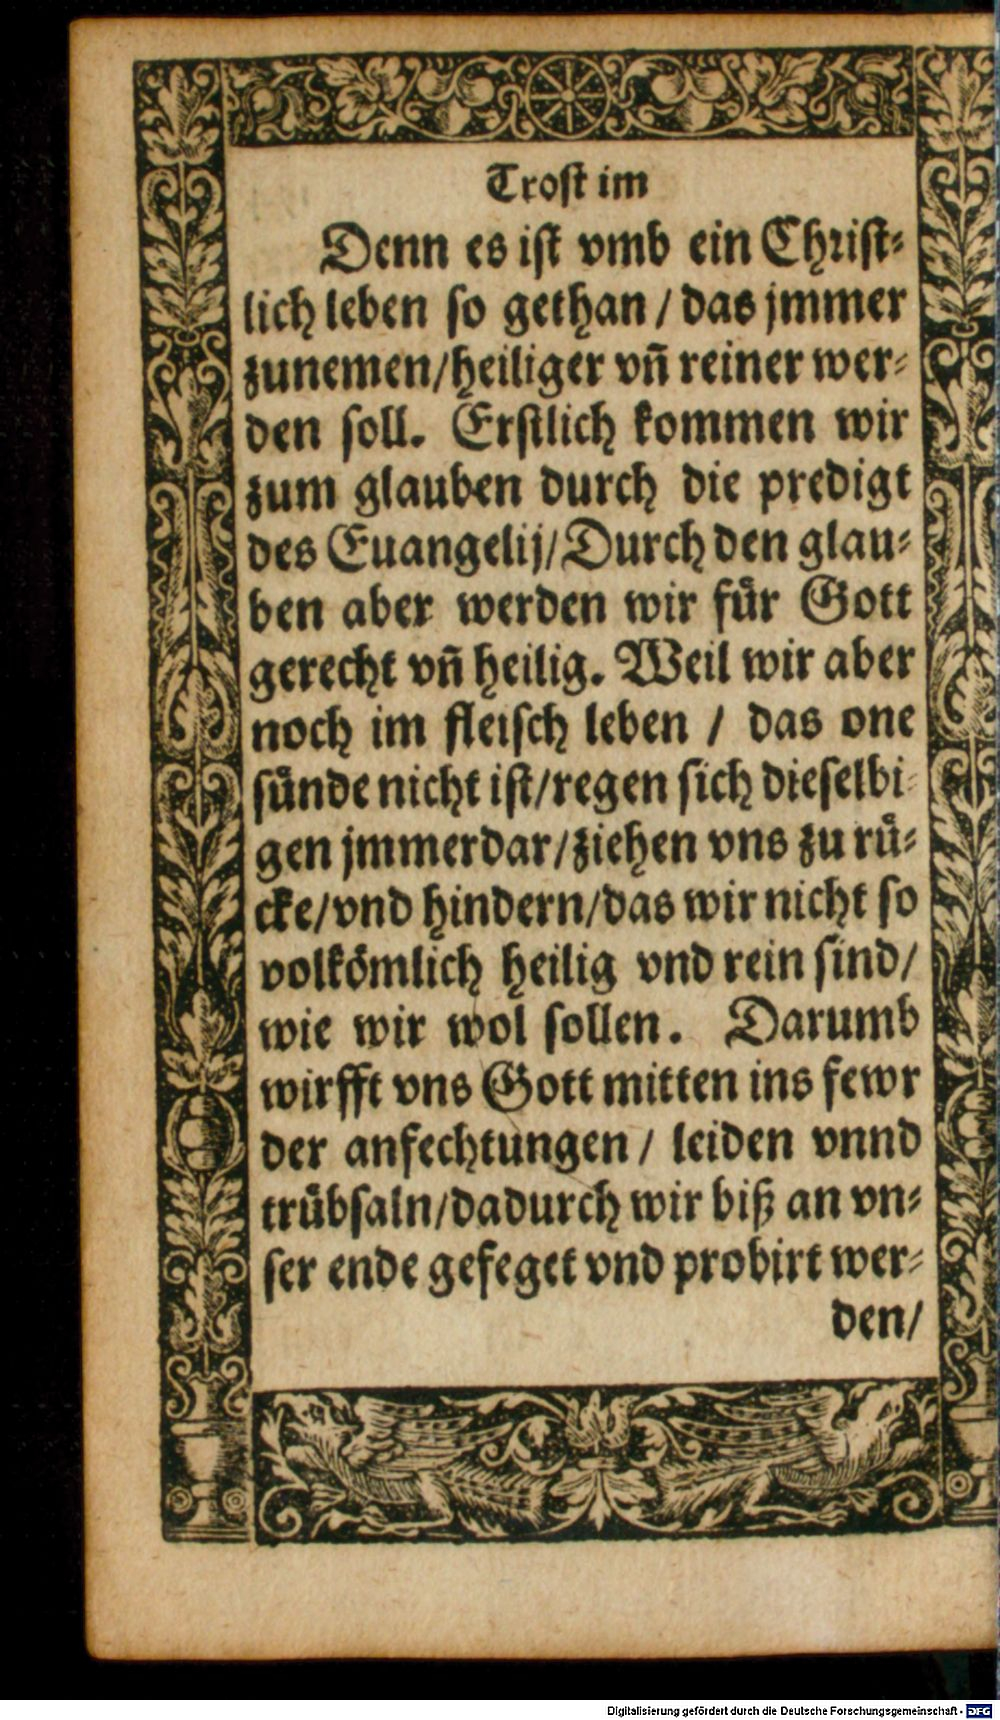 Trost im
Denn es ist vmb ein Christ-
lich leben so gethan / das jmmer
zunemen/heiliger vn̄ reiner wer-
den soll. Erstlich kommen wir
zum glauben durch die predigt
des Euangelij/Durch den glau-
ben aber werden wir fuͤr Gott
gerecht vn̄ heilig. Weil wir aber
noch im fleisch leben / das one
suͤnde nicht ist/regen sich dieselbi-
gen jmmerdar/ziehen vns zu ruͤ-
cke/vnd hindern/das wir nicht so
volkoͤmlich heilig vnd rein sind/
wie wir wol sollen. Darumb
wirfft vns Gott mitten ins fewr
der anfechtungen / leiden vnnd
truͤbsaln/dadurch wir biß an vn-
ser ende gefeget vnd probirt wer-
den/
Digitalisierung gefördert durch die Deutsche Forschungsgemeinschaft - DFG